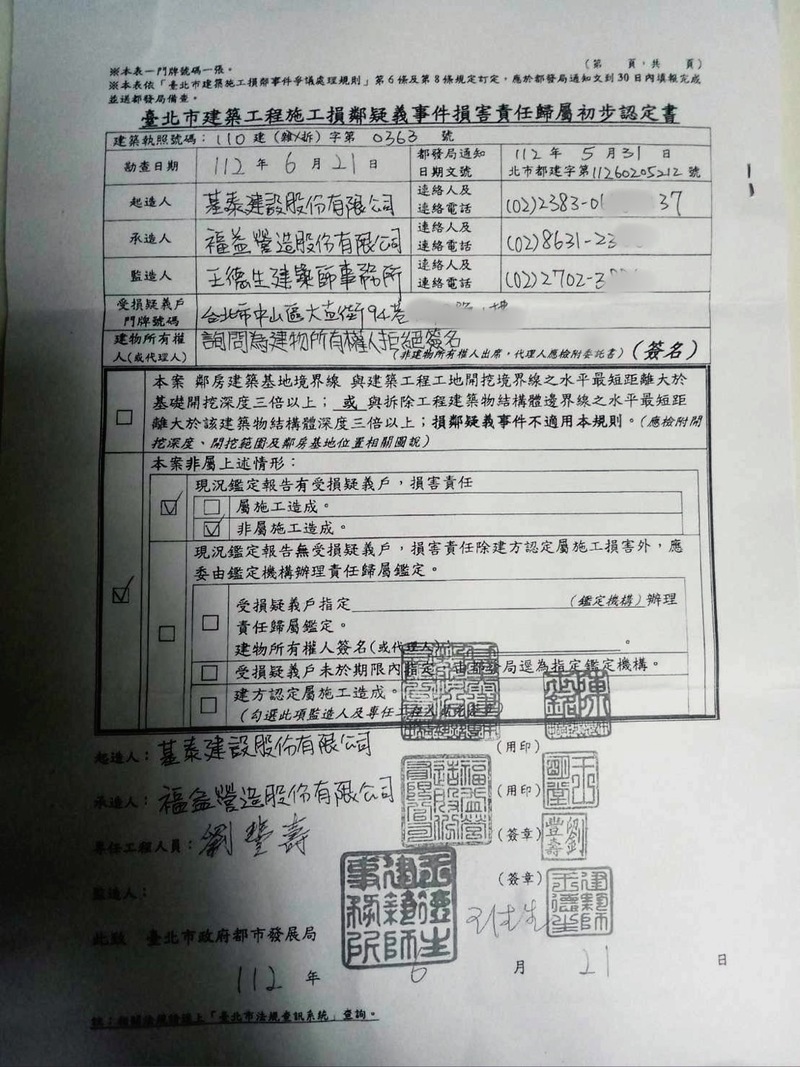 (第 頁,共 頁)
※本表一門牌號碼一張。
※本表依「臺北市建築施工損鄰事件爭議處理規則」第6條及第8條規定訂定,應於都發局通知文到30日內填報完成
並送都發局備查。
臺北市建築工程施工損鄰疑義事件損害責任歸屬初步認定書
建築執照號碼:110建(雜、拆)字第0363號
勘查日期 112年6月21日 都發局通知日期文號 112年5月31日 北市都建字第11260205212號
起造人 基泰建設股份有限公司 連絡人及連絡電話 (02)2383-01 37
承造人 福益營造股份有限公司 連絡人及連絡電話 (02)8631-23
監造人 王德生建築師事務所 連絡人及連絡電話 (02)2702-3
受損疑義戶門牌號碼 台北市中山區大直街94巷
建物所有權人(或代理人) 詢問為建物所有權人拒絕簽名
(非建物所有權人出席,代理人應檢附委託書)(簽名)
□ 本案 鄰房建築基地境界線 與建築工程工地開挖境界線之水平最短距離大於
基礎開挖深度三倍以上;或 與拆除工程建築物結構體邊界線之水平最短距
離大於該建築物結構體深度三倍以上;損鄰疑義事件不適用本規則。(應檢附開
挖深度、開挖範圍及鄰房基地位置相關圖說)
☑ 本案非屬上述情形:
☑ 現況鑑定報告有受損疑義戶,損害責任
□ 屬施工造成。
☑ 非屬施工造成。
□ 現況鑑定報告無受損疑義戶,損害責任除建方認定屬施工損害外,應
委由鑑定機構辦理責任歸屬鑑定。
□ 受損疑義戶指定 (鑑定機構)辦理
責任歸屬鑑定。
建物所有權人簽名(或代理人): 。
□ 受損疑義戶未於期限內指定,由都發局逕為指定鑑定機構。
□ 建方認定屬施工造成。
(勾選此項監造人及專任工程人員
起造人:基泰建設股份有限公司 (用印)
承造人:福益營造股份有限公司 (用印)
專任工程人員:劉豐壽 (簽章) 劉豐壽
監造人: 王德生建築師事務所 (簽章) 建築師王德生
此致 臺北市政府都市發展局
112年6月21日
註:相關法規請上「臺北市法規查詢系統」查詢。